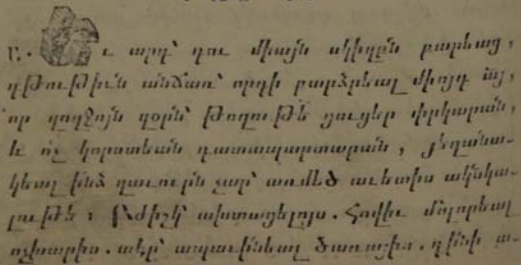 ր. Եւ արդ՝ դու միայն սկիզբն բարեաց,
գթութիւն անճառ՝ որդի բարձրեալ միոյդ այ,
որ զողջոյն զօրն՝ թողութե ցուցեր փրկարան,
և ոչ կորստեան դատապարտարան, յեղանա-
կեալ ինձ զաւուրն չար՝ առ մեծ աւետիս ակնկա-
լութե։ Բժիշկ՝ ախտացելոյս. Հովիւ մոլորեալ
ոչխարիս. տէր՝ ապաւինեալ ծառայիս. գինի